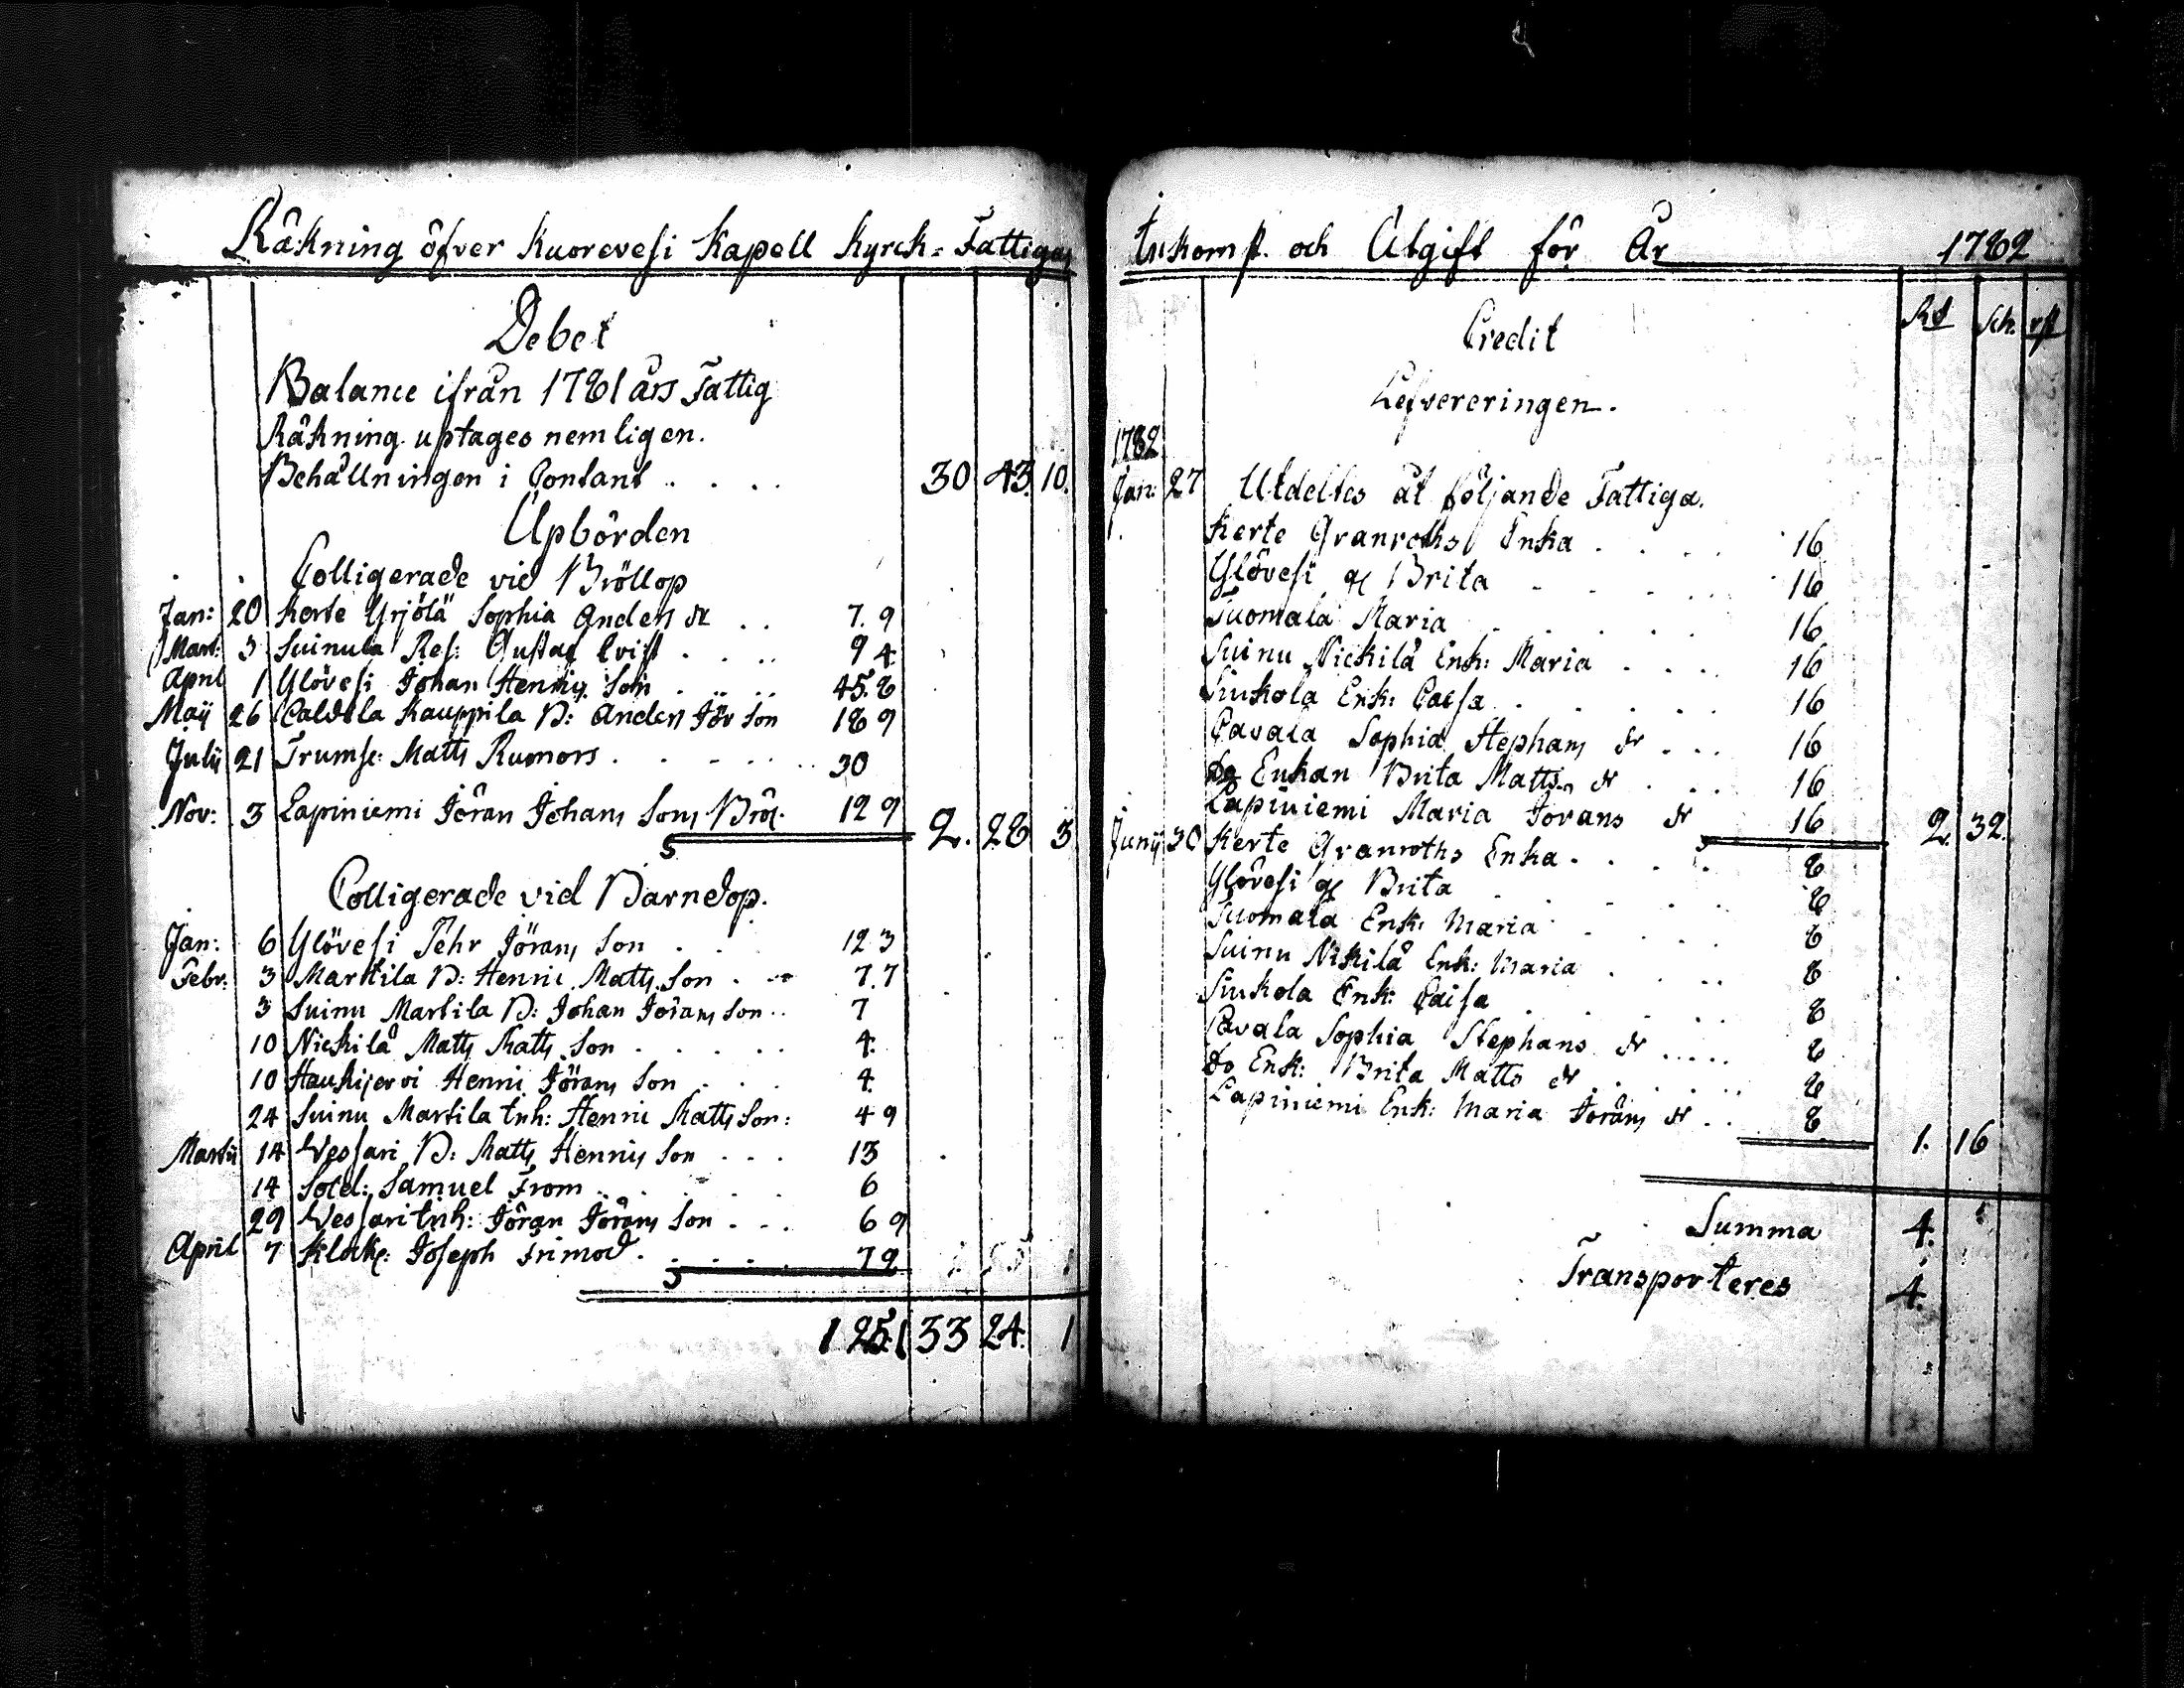 Räkning öfver Kuorevesi Kapell Kyrck=Fattigas
Debet
Balance ifrån 1781 års Fattig
Räkning uptages nemligen.
Behållningen i Contant . . . . 30 43. 10.
Upbörden
Colligerade vid Bröllop
Jan: 20 Kerte Yrjölä Sophia Anders dr . . 7. 9
Mart: 3 Suinula Res: Gustaf Qvist . . . . 9 4
April 1 Ylövesi Johan Henrics Son . . . . 45. 8
Maij 26 Caldila Kauppila B: Anders Jör Son 18 9
Julii 21 Trumsl: Matts Rumors . . . . . 30
Nov: 3 Lapiniemi Jöran Johans Sons Bröl. 12 9 2. 28 3
Colligerade vid Barndop.
Jan: 6 Ylövesi Pehr Jörans Son . . . 12 3
Febr: 3 Markila B: Henric Matts Son . . . 7. 7
3 Suinu Martila B: Johan Jörans Son . . 7
10 Nickilä Matts Matts Son . . . . . 4.
10 Haukijervi Henric Jörans Son . . . 4.
24 Suinu Martila Inh: Henric Matts Son: 4 9
Martii 14 Vessari B: Matts Henrics Son . . . 13
14 Sold: Samuel From . . . . . . 6
29 Vessari Inh: Jöran Jörans Son . . . 6 9
April 7 Klock: Joseph Frimod . . . . . 7 2
1 25. 1 33 24. 1
Inkomst. och Utgift för År 1782
Rd Sch. rst
Credit
Lefvereringen.
1782
Jan: 27 Utdeltes åt följande Fattiga.
Kerte Granroths Enka . . . . 16
Ylövesi q Brita . . . . . 16
Suomala Maria . . . . . 16
Suinu Nickilä Enk: Maria . . . . 16
Sinkola Enk: Caisa . . . . . 16
Pavala Sophia Stephans dr . . . 16
Do Enkan Brita Matts dr . . . 16
Lapiniemi Maria Jörans dr 16 2. 32.
Junij 30 Kerte Granroths Enka . . . . 8
Ylövesi q Brita . . . . . 8
Suomala Enk: Maria . . . . 8
Suinu Nikilä Enk: Maria . . . . 8
Sinkola Enk: Caisa . . . . . 8
Pavala Sophia Stephans dr . . . . . 8
Do Enk: Brita Matts dr . . . . . 8
Lapiniemi Enk: Maria Jörans dr . . 8 1. 16
Summa 4.
Transporteres 4.